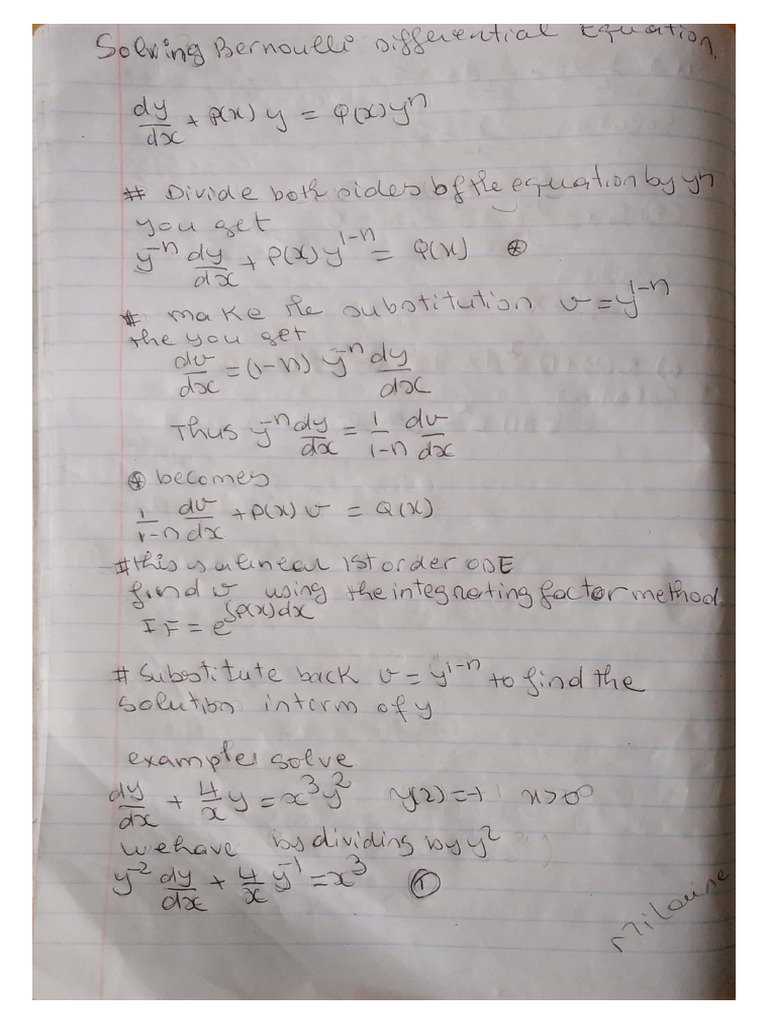 Solving Bernoulli Differential Equation.
dy/dx + P(x) y = Q(x)yⁿ
# Divide both sides of the equation by yⁿ
you get
y⁻ⁿ dy/dx + P(x) y¹⁻ⁿ = Q(x) ⊛
* make the substitution v = y¹⁻ⁿ
the you get
dv/dx = (1-n) y⁻ⁿ dy/dx
Thus y⁻ⁿ dy/dx = 1/1-n dv/dx
⊛ becomes
1/1-n dv/dx + P(x) v = Q(x)
# this is a linear 1st order ODE
find v using the integrating factor method
IF = e^∫P(x)dx
# Substitute back v = y¹⁻ⁿ to find the
solution interm of y
examples solve
dy/dx + 4/x y = x³y² y(2) = -1 x>0
we have by dividing by y²
y⁻² dy/dx + 4/x y⁻¹ = x³ ①
Milaine